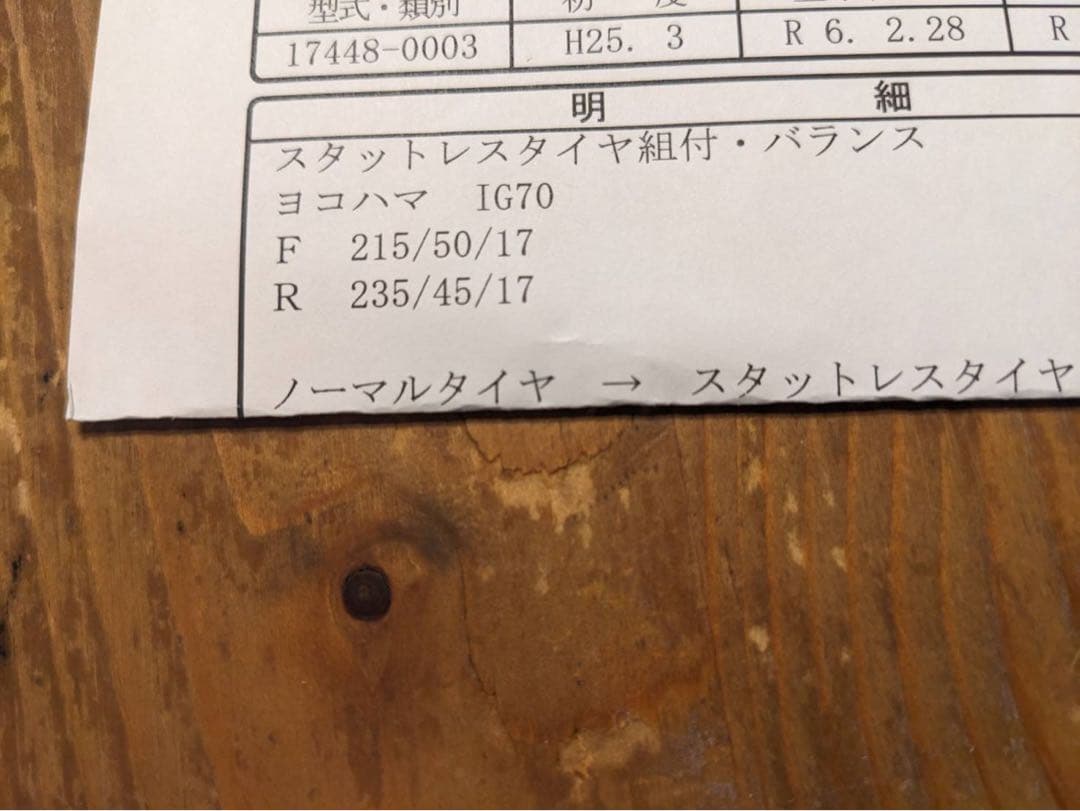 型式・類別 初 度
17448-0003 H25. 3 R 6. 2.28 R
明 細
スタットレスタイヤ組付・バランス
ヨコハマ IG70
F 215/50/17
R 235/45/17
ノーマルタイヤ → スタットレスタイヤ